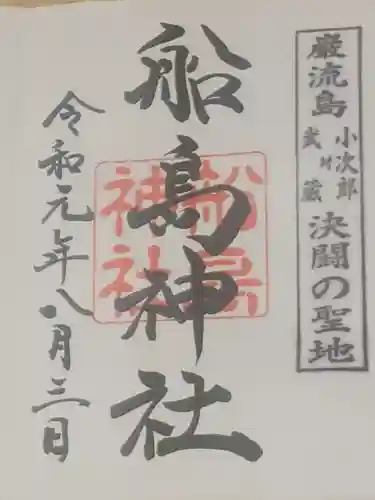 巌流島 小次郎 武蔵 決闘の聖地
船島神社
船島神社
令和元年八月三日